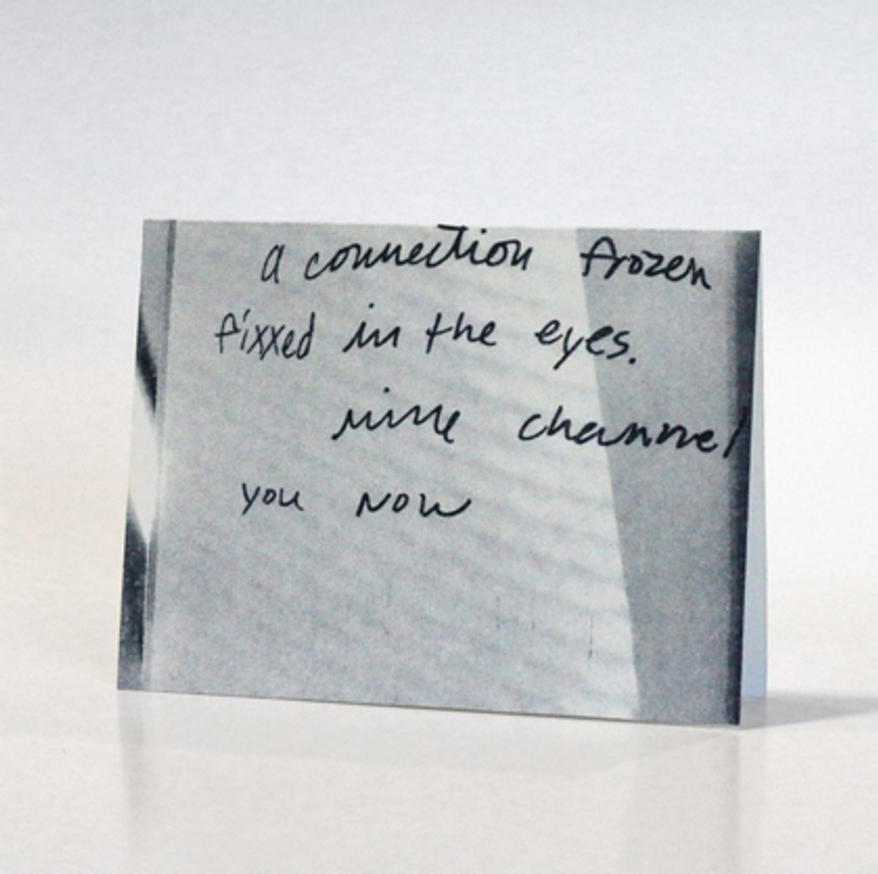 a connection frozen
fixxed in the eyes.
channel
you now